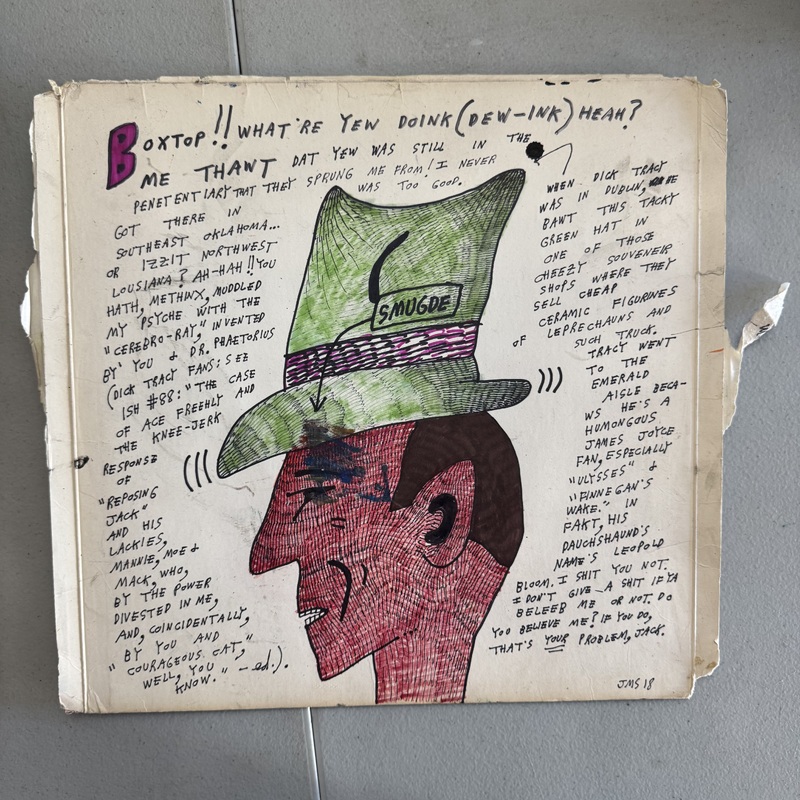 BOXTOP!! WHAT'RE YEW DOINK (DEW-INK) HEAH?
ME THANT DAT YEW WAS STILL IN THE
PENETENTIARY THAT THEY SPRUNG ME FROM! I NEVER
WAS TOO GOOD.
GOT THERE IN
SOUTHEAST OKLAHOMA...
OR IZZIT NORTHWEST
LOUSIANA? AH-HAH!! YOU
HATH, METHINX, MUDDLED
MY PSYCHE WITH THE
"CEREBRO-RAY," INVENTED
BY YOU & DR. PRAETORIUS
(DICK TRACY FANS: SEE
ISH #88: "THE CASE
OF ACE FREEHLY AND
THE KNEE-JERK
RESPONSE
OF
"REPOSING
JACK"
AND HIS
LACKIES,
MANNIE, MOE &
MACK, WHO,
BY THE POWER
DIVESTED IN ME,
AND, COINCIDENTALLY,
BY YOU AND
"COURAGEOUS CAT,"
WELL, YOU
KNOW." -ed.).
SMUGDE
WHEN DICK TRACY
WAS IN DUBLIN, HE
BAWT THIS TACKY
GREEN HAT IN
ONE OF THOSE
CHEEZY SOUVENEIR
SHOPS WHERE THEY
SELL CHEAP
CERAMIC FIGURINES
OF LEPRECHAUNS AND
SUCH TRUCK.
TRACY WENT
TO THE
EMERALD
AISLE BECA-
WS HE'S A
HUMONGOUS
JAMES JOYCE
FAN, ESPECIALLY
"ULYSSES" &
"FINNEGAN'S
WAKE." IN
FAKT, HIS
DAUCHSHAUND'S
NAME'S LEOPOLD
BLOOM. I SHIT YOU NOT.
I DON'T GIVE A SHIT IF YA
BELEEB ME OR NOT. DO
YOU BELIEVE ME? IF YOU DO,
THAT'S YOUR PROBLEM, JACK.
JMS 18